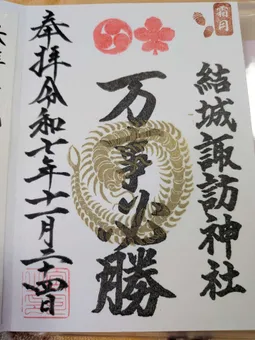 霜月
結城諏訪神社
万事必勝
奉拝令和七年十一月二十四日